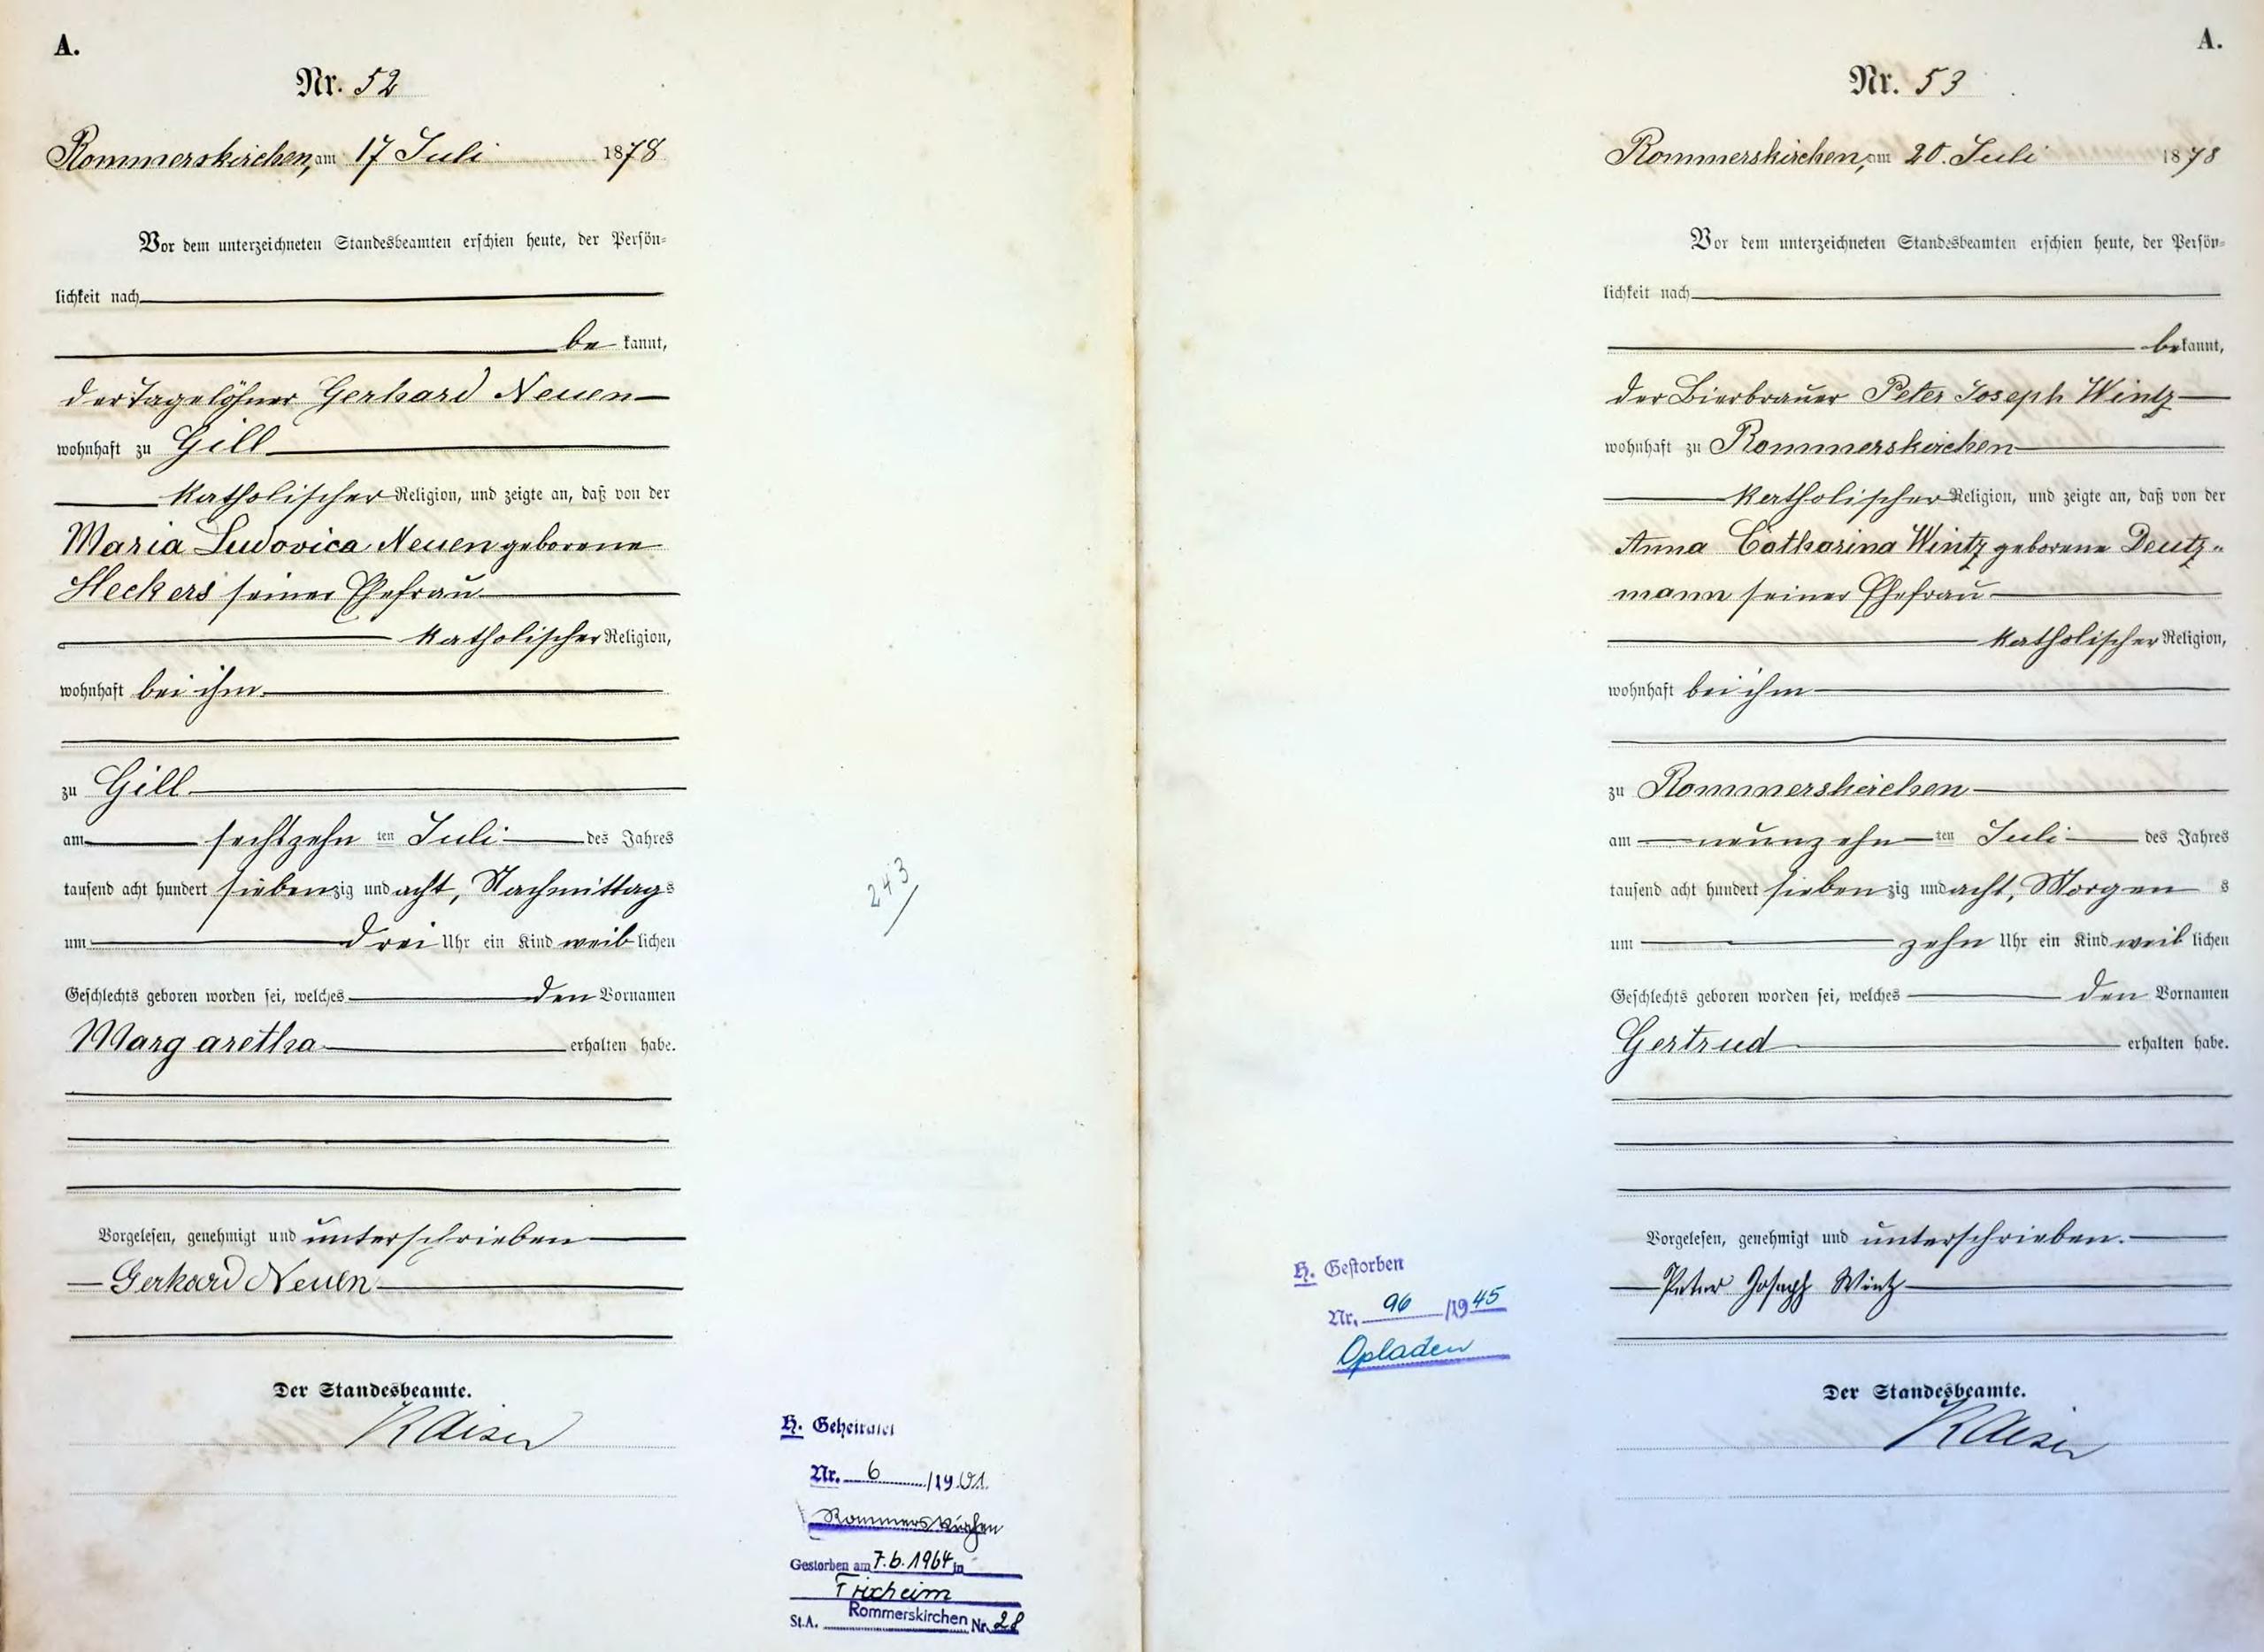 A.
Nr. 52
Rommerskirchen, am 17 Juli 1878
Vor dem unterzeichneten Standesbeamten erschien heute, der Persön-
lichkeit nach
be kannt,
der Tagelöhner Gerhard Neuen
wohnhaft zu Gill
katholischer Religion, und zeigte an, daß von der
Maria Ludovica Neuen geborene
Heckers seiner Ehefrau
katholischer Religion,
wohnhaft bei ihm
zu Gill
am sechszehn ten Juli des Jahres
tausend acht hundert siebenzig und acht, Nachmittags
um drei Uhr ein Kind weib lichen
Geschlechts geboren worden sei, welches den Vornamen
Margaretha erhalten habe.
Vorgelesen, genehmigt und unterschrieben
Gerhard Neuen
Der Standesbeamte.
Kaiser
243
H. Geheiratet
Nr. 6 /1901.
Rommerskirchen
Gestorben am 7.6.1964 in
St.A. Rommerskirchen Nr. 28
A.
Nr. 53
Rommerskirchen, am 20. Juli 1878
Vor dem unterzeichneten Standesbeamten erschien heute, der Persön-
lichkeit nach
bekannt,
der Bierbrauer Peter Joseph Wintz
wohnhaft zu Rommerskirchen
katholischer Religion, und zeigte an, daß von der
Anna Catharina Wintz geborene Deutz-
mann seiner Ehefrau
katholischer Religion,
wohnhaft bei ihm
zu Rommerskirchen
am neunzehn ten Juli des Jahres
tausend acht hundert siebenzig und acht, Morgen s
um zehn Uhr ein Kind weib lichen
Geschlechts geboren worden sei, welches den Vornamen
Gertrud erhalten habe.
Vorgelesen, genehmigt und unterschrieben.
Peter Joseph Wintz
Der Standesbeamte.
Kaiser
H. Gestorben
Nr. 96 /1945
Opladen